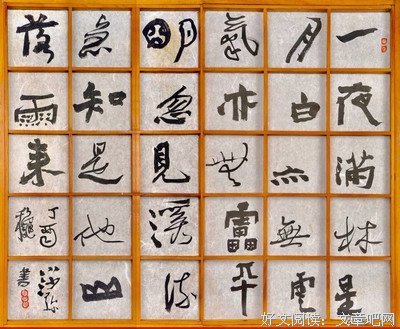 一夜滿林星
月白亦無雲
氣亦無雷平
明忽見溪流
急知是他山
落雨來
丁酉
沙弥
書
好文阅读：文章吧网